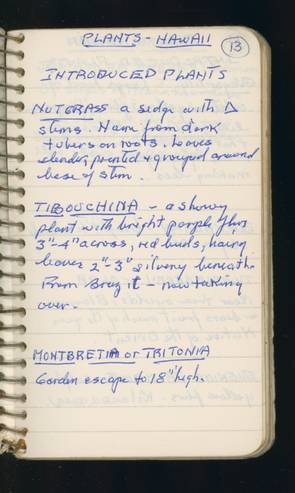 PLANTS - HAWAII
13
INTRODUCED PLANTS
NUTGRASS a sedge with △
stems. Name from dark
tubers on roots. Leaves
slender, pointed & grouped around
base of stem.
TIBOUCHINA - a showy
plant with bright purple flrs
3"-4" across, red buds, hairy
leaves 2"-3" silvery beneath.
From Brazil - now taking
over.
MONTBRETIA or TRITONIA
Garden escape to 18" high.